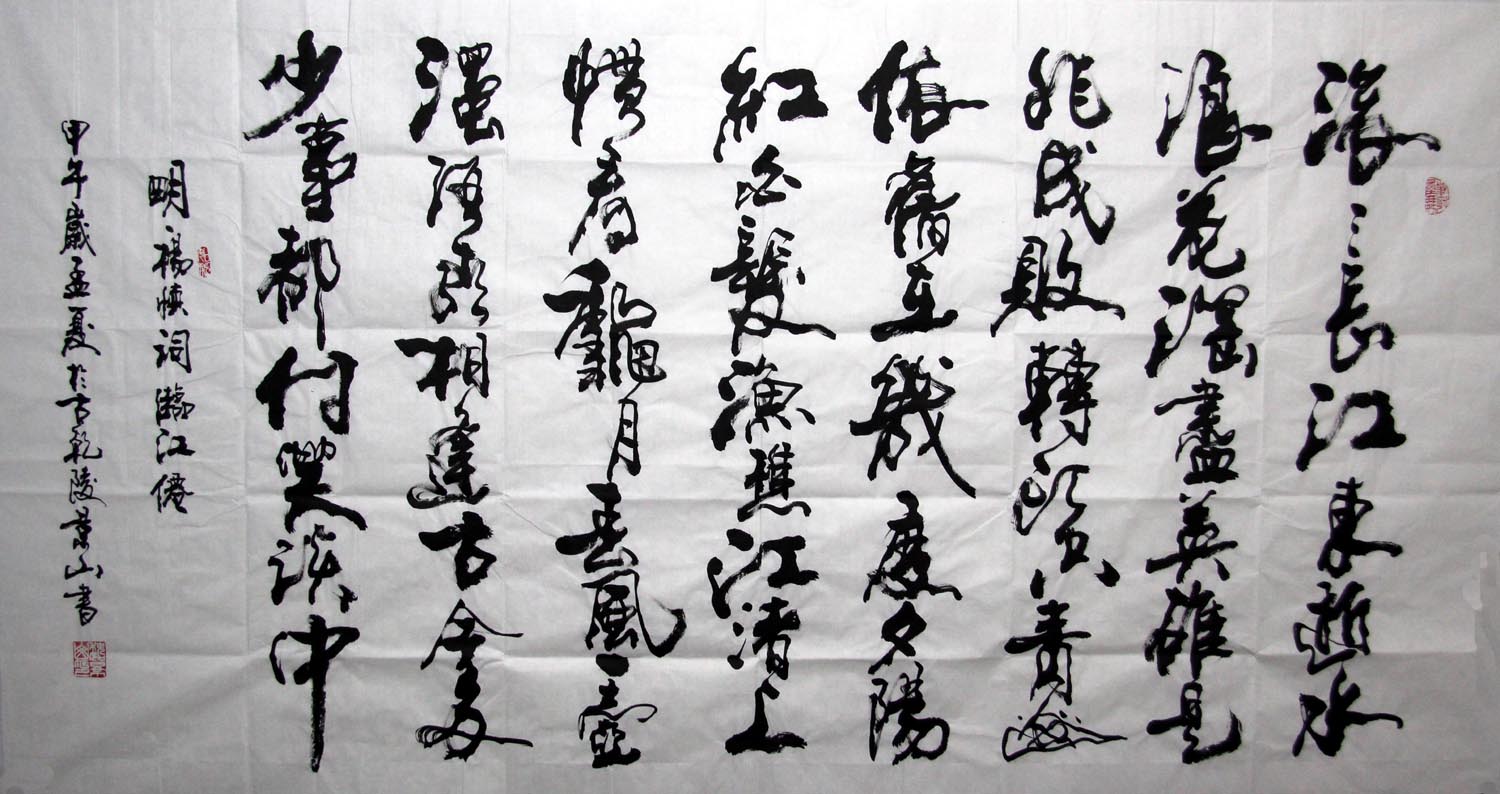 滚〻長江東逝水
浪花淘盡英雄是
非成敗轉頭空青山
依舊在幾度夕陽
紅白髮漁樵江渚上
慣看龝月春風一壺
濁酒喜相逢古今多
少事都付笑談中
明楊慎詞臨江僊
甲午歲孟夏於古乾陵景山書